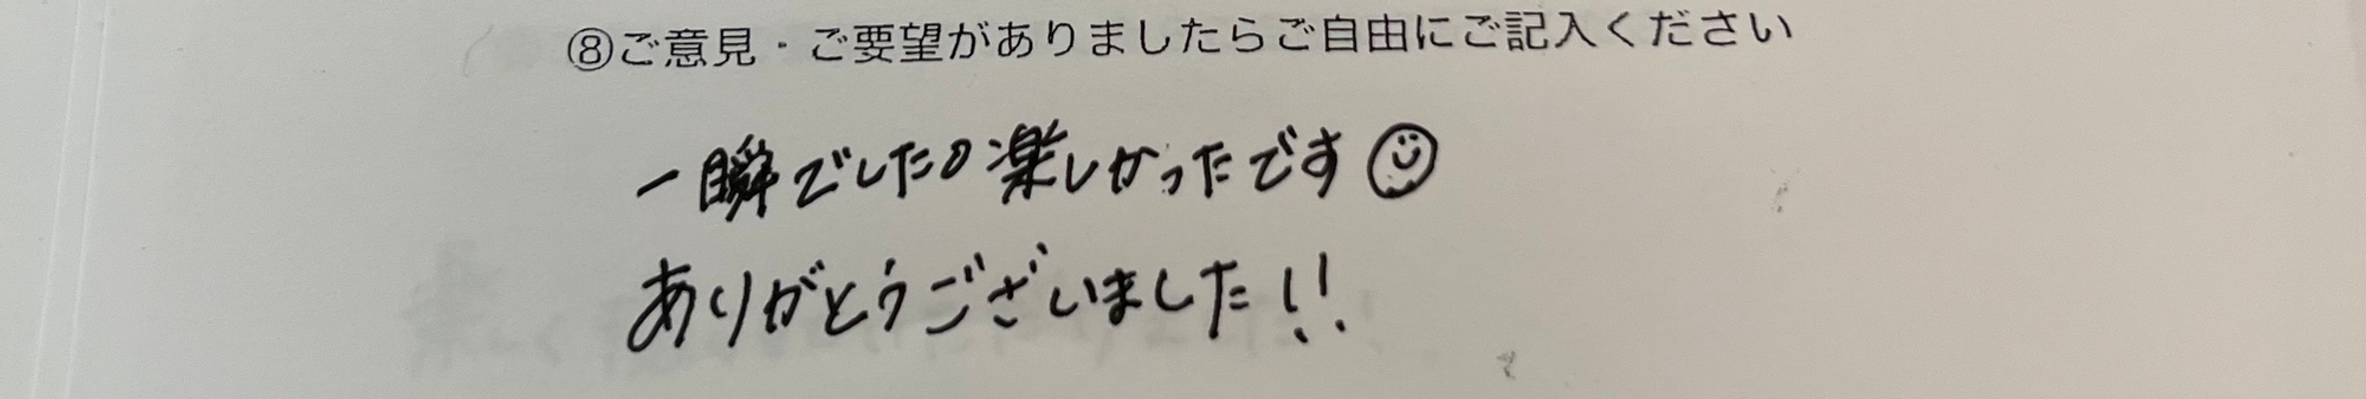 ⑧ご意見・ご要望がありましたらご自由にご記入ください
一瞬でした。楽しかったです☺
ありがとうございました!!